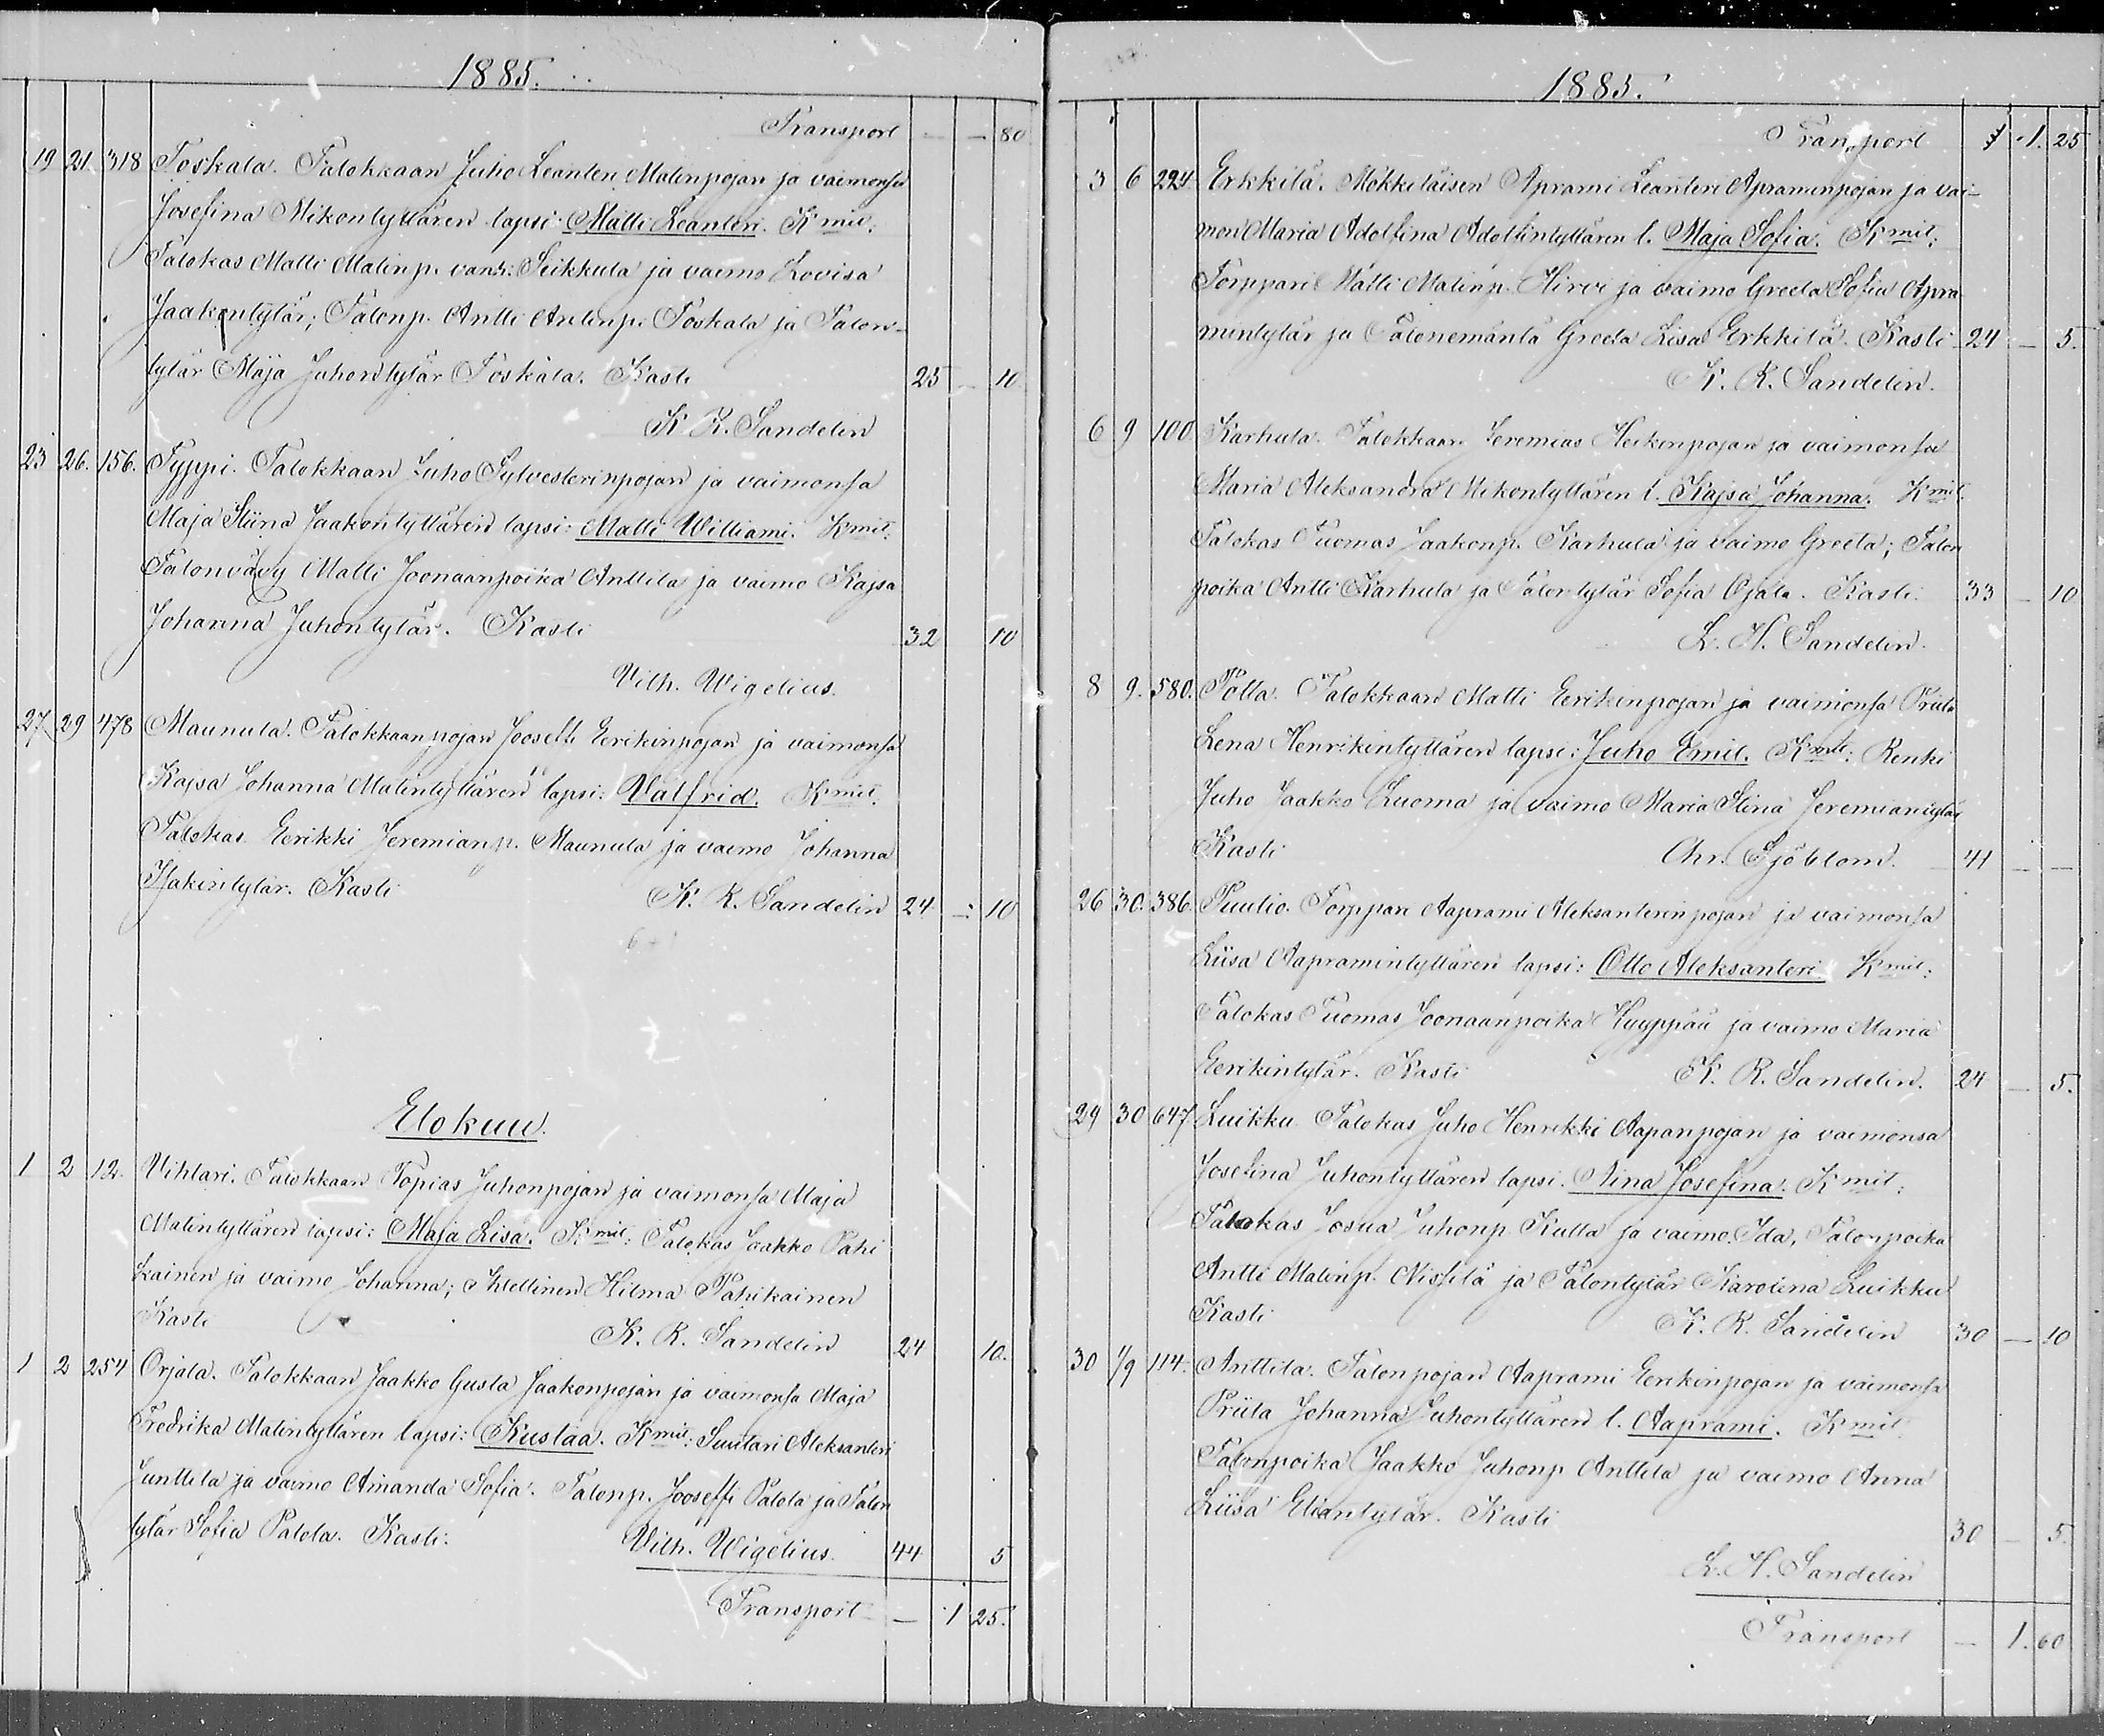 1885.
Transport - - 80
19 21. 318 Toskala. Talokkaan Juho Leanteri Matinpojan ja vaimonsa
Josefina Mikontyttären lapsi: Matti Leanteri. Kmit:
Talokas Matti Matinp. vanh: Seikkula ja vaimo Lovisa
Jaakontytär; Talonp. Antti Antinp. Toskala ja Talon-
tytär Maja Juhontytär Toskala. Kasti 25 - 10
K. R. Sandelin
23 26. 156. Typpi. Talokkaan Juho Sylvesterinpojan ja vaimonsa
Maja Stiina Jaakontyttären lapsi: Matti Williami. Kmit:
Talonvävy Matti Joonaanpoika Anttila ja vaimo Kajsa
Johanna Juhontytär. Kasti 32 10
Vilh. Wigelius.
27 29 478 Maunula. Talokkaanpojan Jooseffi Eerikinpojan ja vaimonsa
Kajsa Johanna Matintyttären lapsi: Valfrid. Kmit.
Talokas Eerikki Jeremianp. Maunula ja vaimo Johanna
Isakintytär. Kasti K. R. Sandelin 24 - 10
Elokuu.
1 2 12. Vihtari. Talokkaan Topias Juhonpojan ja vaimonsa Maja
Matintyttären lapsi: Maja Lisa. Kmit: Talokas Jaakko Pahi
kainen ja vaimo Johanna; Itsellinen Hilma Pahikainen
Kasti K. R. Sandelin 24 10.
1 2 254 Orjala. Talokkaan Jaakko Gusta Jaakonpojan ja vaimonsa Maja
Fredrika Matintyttären lapsi: Kustaa. Kmit: Suutari Aleksanteri
Junttila ja vaimo Amanda Sofia. Talonp. Jooseffi Palola ja Talon
tytär Sofia Palola. Kasti: Vilh. Wigelius. 44 5
Transport - 1 25.
1885.
Transport 1. 25
3 6 224 Erkkilä. Mökkiläisen Aprami Leanteri Apraminpojan ja vai-
mon Maria Adolfina Adolfintyttären l. Maja Sofia. Kmit:
Torppari Matti Matinp. Hirvi ja vaimo Greeta Sofia Apra
mintytär ja Talonemäntä Greeta Lisa Erkkilä. Kasti 24 - 5.
K. R. Sandelin.
6 9 100 Karhula. Talokkaan Jeremias Heikinpojan ja vaimonsa
Maria Aleksandra Mikontyttären l. Kajsa Johanna. Kmit.
Talokas Tuomas Jaakonp. Karhula ja vaimo Greeta; Talon
poika Antti Karhula ja Talontytär Sofia Ojala. Kasti. 33 - 10
L. H. Sandelin.
8 9. 580. Polla. Talokkaan Matti Eerikinpojan ja vaimonsa Priita
Lena Henrikintyttären lapsi: Juho Emil. Kmit: Renki
Juho Jaakko Luoma ja vaimo Maria Stina Jeremiantytär
Kasti Chr. Sjöblom. 41 - -
26 30. 386. Puutio. Torppari Aaprami Aleksanterinpojan ja vaimonsa
Liisa Aapramintyttären lapsi: Otto Aleksanteri. Kmit:
Talokas Tuomas Joonaanpoika Hyyppää ja vaimo Maria
Eerikintytär. Kasti K. R. Sandelin. 24 - 5.
29 30 647 Luikku. Talokas Juho Henrikki Aapanpojan ja vaimonsa
Josefina Juhontyttären lapsi. Nina Josefina. Kmit:
Talokas Josua Juhonp. Kulla ja vaimo Ida, Talonpoika
Antti Matinp. Nissilä ja Talontytär Karolina Luikku
Kasti K. R. Sandelin 30 - 10
30 1/9 114. Anttila. Talonpojan Aaprami Eerikinpojan ja vaimonsa
Priita Johanna Juhontyttären l. Aaprami. Kmit
Talonpoika Jaakko Juhonp. Anttila ja vaimo Anna
Liisa Eliantytär. Kasti 30 - 5.
L. H. Sandelin
Transport - 1. 60